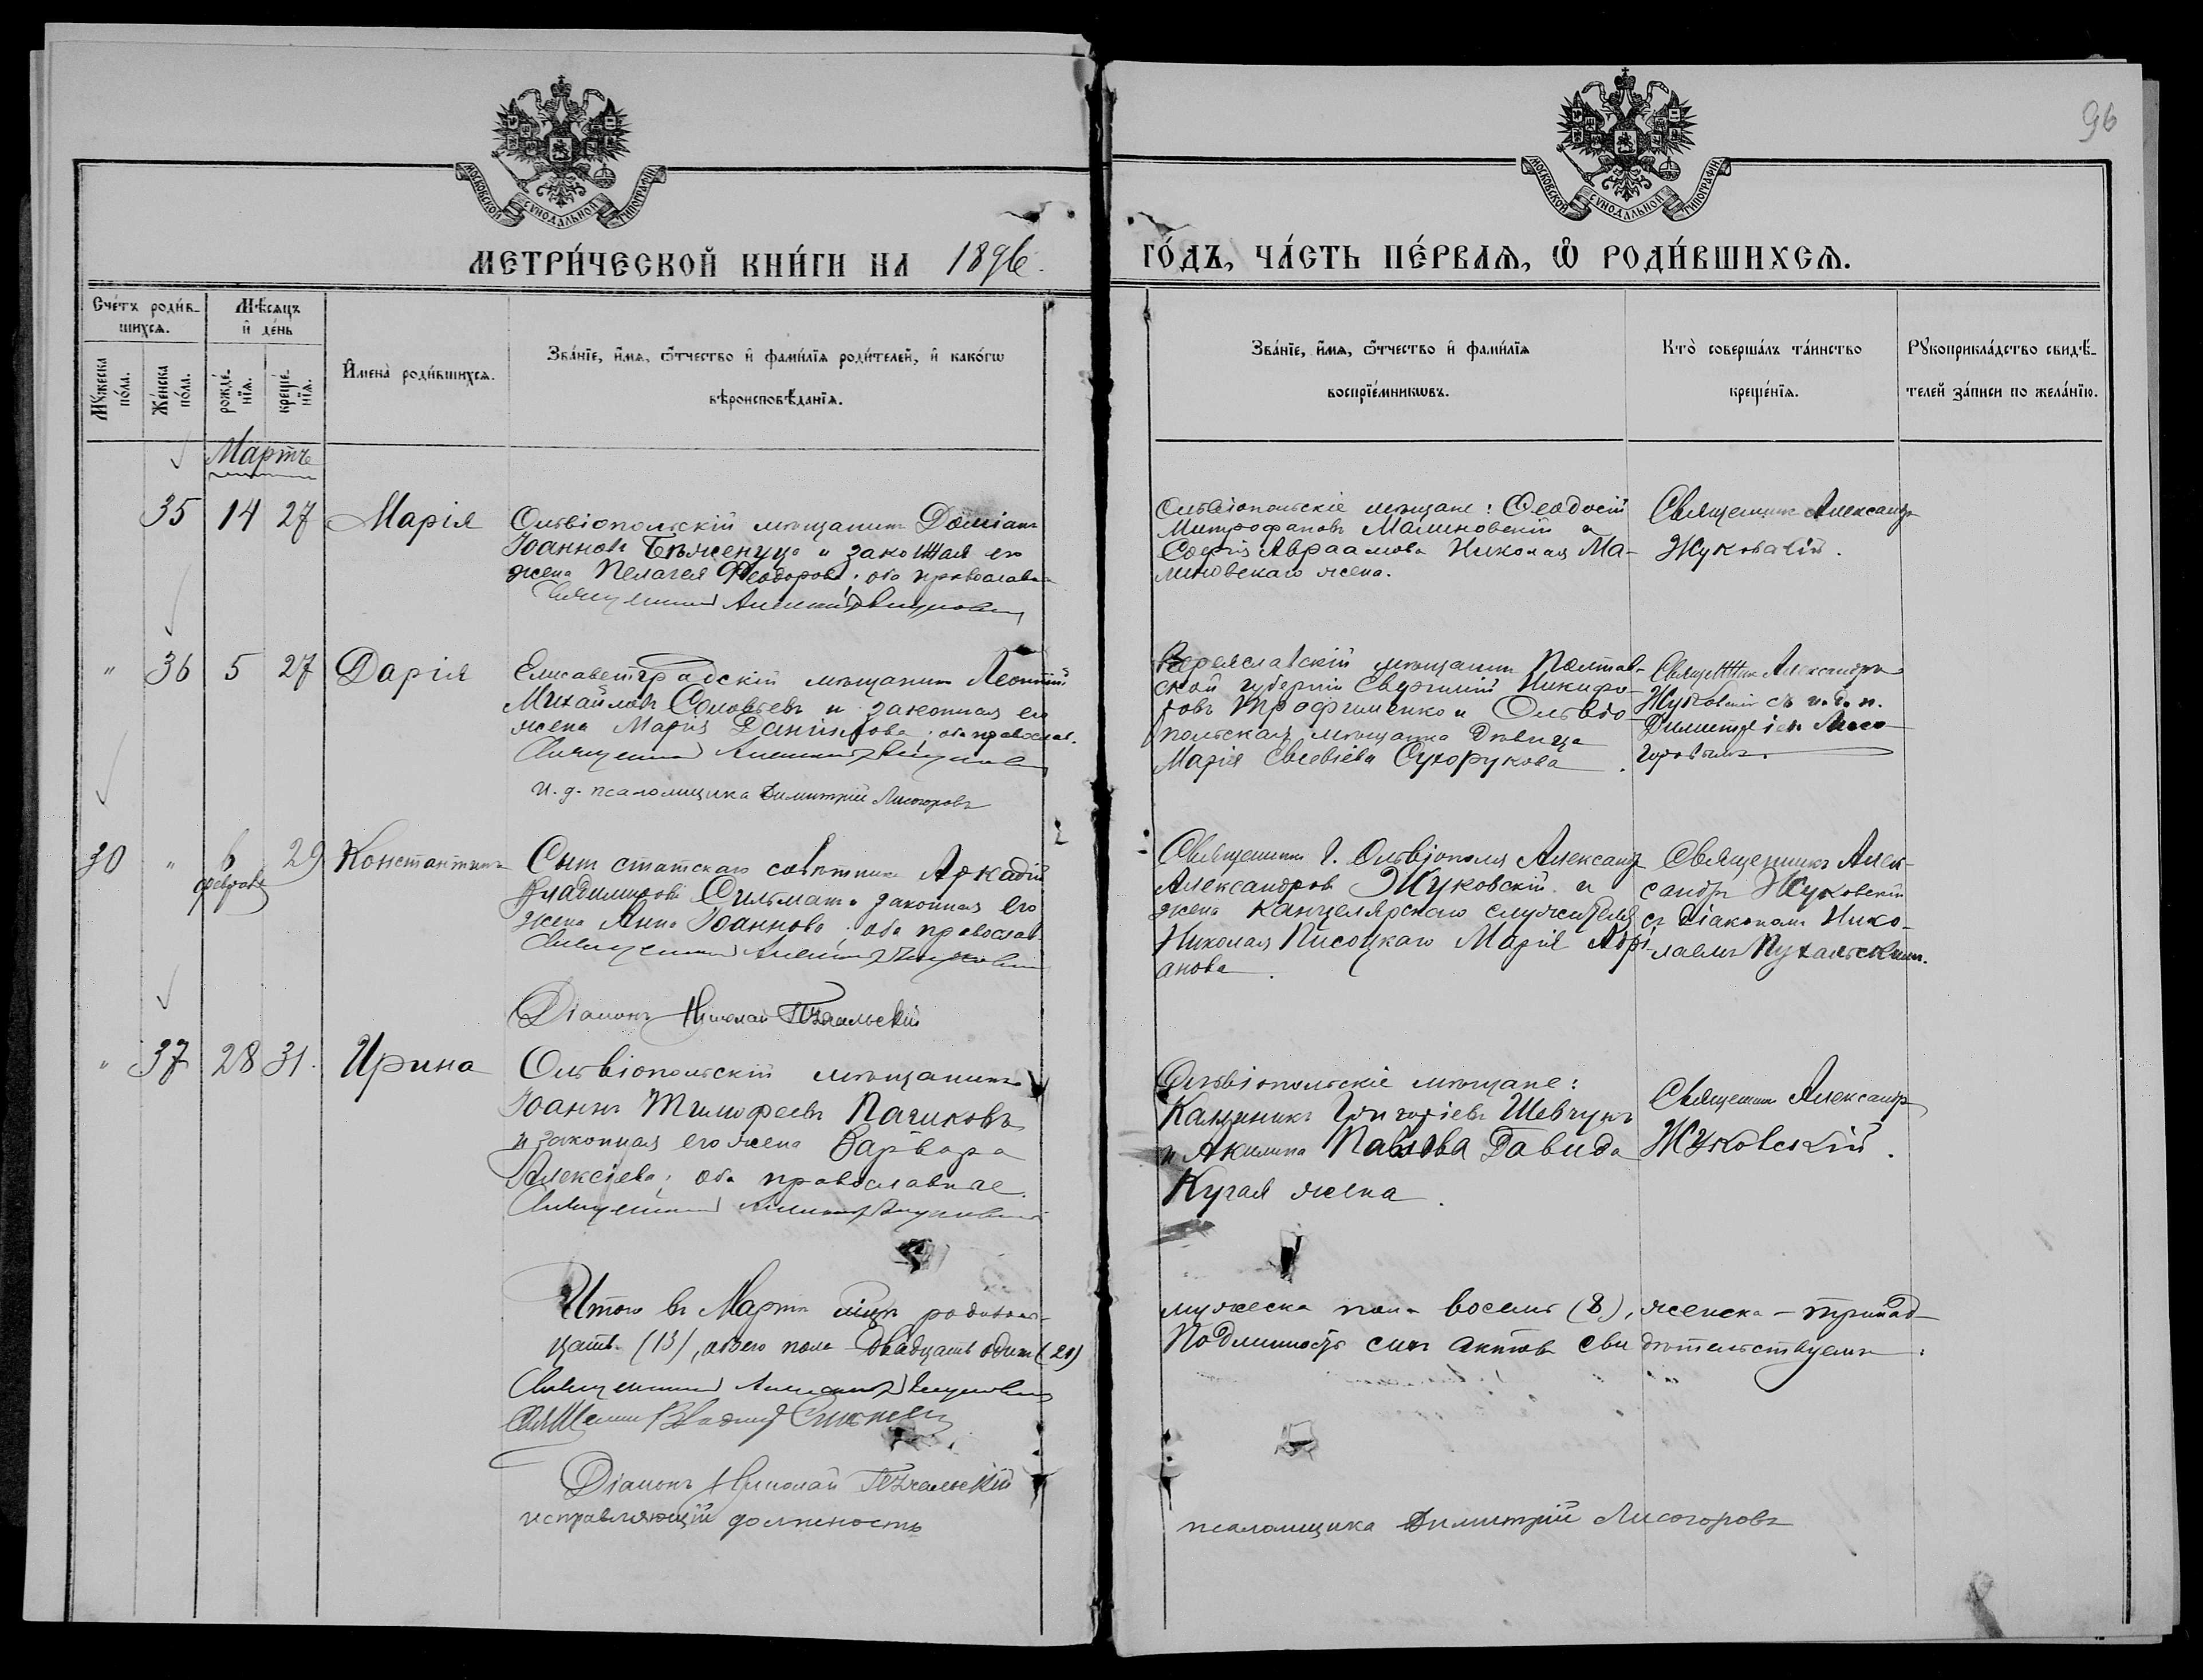 96
МОСКОВСКОЙ СѴНОДАЛЬНОЙ ТИПОГРАФІИ
МОСКОВСКОЙ СѴНОДАЛЬНОЙ ТИПОГРАФІИ
МЕТРИ́ЧЕСКОЙ КНИ́ГИ НА 1896.
ГО́ДЪ, ЧА́СТЬ ПЕ́РВАѦ, Ѽ РОДИ́ВШИХСѦ.
Сче́тъ роди́в-
шихсѧ.
Мѣ́сѧцъ
и҆ де́нь
Мꙋ́жеска
по́ла.
Же́нска
по́ла.
рожде́-
нїѧ.
креще́-
нїѧ.
И҆мена̀ роди́вшихсѧ.
Зва́нїе, и҆́мѧ, ѻ҆́тчество и҆ фами́лїѧ роди́телей, и҆ како́гѡ
вѣроисповѣ́данїѧ.
Зва́нїе, и҆́мѧ, ѻ҆́тчество и҆ фами́лїѧ
воспрїе́мникѡвъ.
Кто̀ соверша́лъ та́инство
креще́нїѧ.
Рꙋкоприкла́дство свидѣ́-
телей за́писи по жела́нїю.
Мартъ
35 14 27 Марія
Ольвіопольскій мѣщанинъ Доміанъ
Іоанновъ Бѣженуца и законная его
жена Пелагея Ѳеодорова; оба православн
Священникъ Александръ Жуковскій
Ольвіопольскіе мѣщане: Ѳеодосій
Митрофановъ Малиновскій и
Софія Авраамова Николая Ма-
линовскаго жена.
Священникъ Александръ
Жуковскій.
" 36 5 27 Дарія
Елисаветградскій мѣщанинъ Леонтій
Михайловъ Соловьевъ и законная его
жена Марія Даніилова; оба православ.
Священникъ Александръ Жуковскій
и. д. псаломщика Димитрій Лисогоровъ
мѣщанинъ Полтав-
ской губерніи Никифо-
ровъ Трофименко и Ольвіо-
польская мѣщанка дѣвица
Марія Евсевіева Сухорукова.
Священникъ Александръ
Жуковскій съ и. д. п.
Димитріемъ Лисо-
горовымъ.
30 " 6 29 Константинъ
февраля
Сынъ статскаго совѣтника Аркадій
Владиміровъ и законная его
жена Анна Іоаннова; оба православ.
Священникъ Александръ Жуковскій
Діаконъ Николай Пухальскій
Священникъ г. Ольвіополя Александръ
Александровъ Жуковскій и
жена канцелярскаго служителя
Николая Писоцкаго Марія Адрі-
анова.
Священникъ Алек-
сандръ Жуковскій
съ діакономъ Нико-
лаемъ Пухальскимъ.
" 37 28 31. Ирина
Ольвіопольскій мѣщанинъ
Іоаннъ Тимофеевъ Пачиковъ
и законная его жена Варвара
Алексіева; оба православные.
Священникъ Александръ Жуковскій
Ольвіопольскіе мѣщане:
Каллиникъ Григоріевъ Шевчукъ
и Акилина Павлова Давида
Кучая жена.
Священникъ Александръ
Жуковскій.
Итого въ Мартѣ мѣсяцѣ родилось
мужеска пола восемь (8), женска – тринад-
цать (13), обоего пола двадцать одинъ (21)
Подлинность сихъ актовъ свидѣтельствуемъ:
Священникъ Александръ Жуковскій
Священникъ Владиміръ
Діаконъ Николай Пухальскій
исправляющій должность
псаломщика Димитрій Лисогоровъ